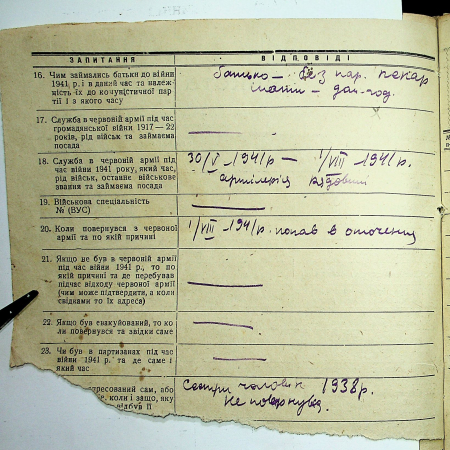 ЗАПИТАННЯ
ВІДПОВІДІ
16. Чим займались батьки до війни
1941 р. і в даний час та належ-
ність їх до комуністичної пар-
тії і з якого часу
батько – без пар. пекар
мати – дом-год.
17. Служба в червоній армії під час
громадянської війни 1917—22
років, рід військ та займаєма
посада
18. Служба в червоній армії під час
війни 1941 року, який час,
рід військ, останнє військове
звання та займаєма посада
30/V -1941р — 1/VIII -1941р.
артилерія рядовий
19. Військова спеціальність
№ (ВУС)
20. Коли повернувся з червоної
армії та по якій причині
1/VIII -1941р. попав в оточення
21. Якщо не був в червоній армії
під час війни 1941 р., то по
якій причині та де перебував
підчас відходу червоної армії
(чим може підтвердити, а коли
свідками то їх адреса)
22. Якщо був евакуйований, то ко-
ли повернувся та звідки саме
23. Чи був в партизанах під час
війни 1941 р. та де саме і
який час
ресований сам, або
коли і защо, яку
відбув її
Сестри чоловік 1938р.
Не повернувся.